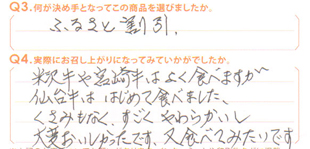 Q3.何が決め手となってこの商品を選びましたか。
ふるさと割引.
Q4.実際にお召し上がりになってみていかがでしたか。
米沢牛や宮崎牛はよく食べますが
仙台牛は はじめて食べました、
くさみもなく、すごくやわらかいし
大変おいしかったです、又食べてみたいです